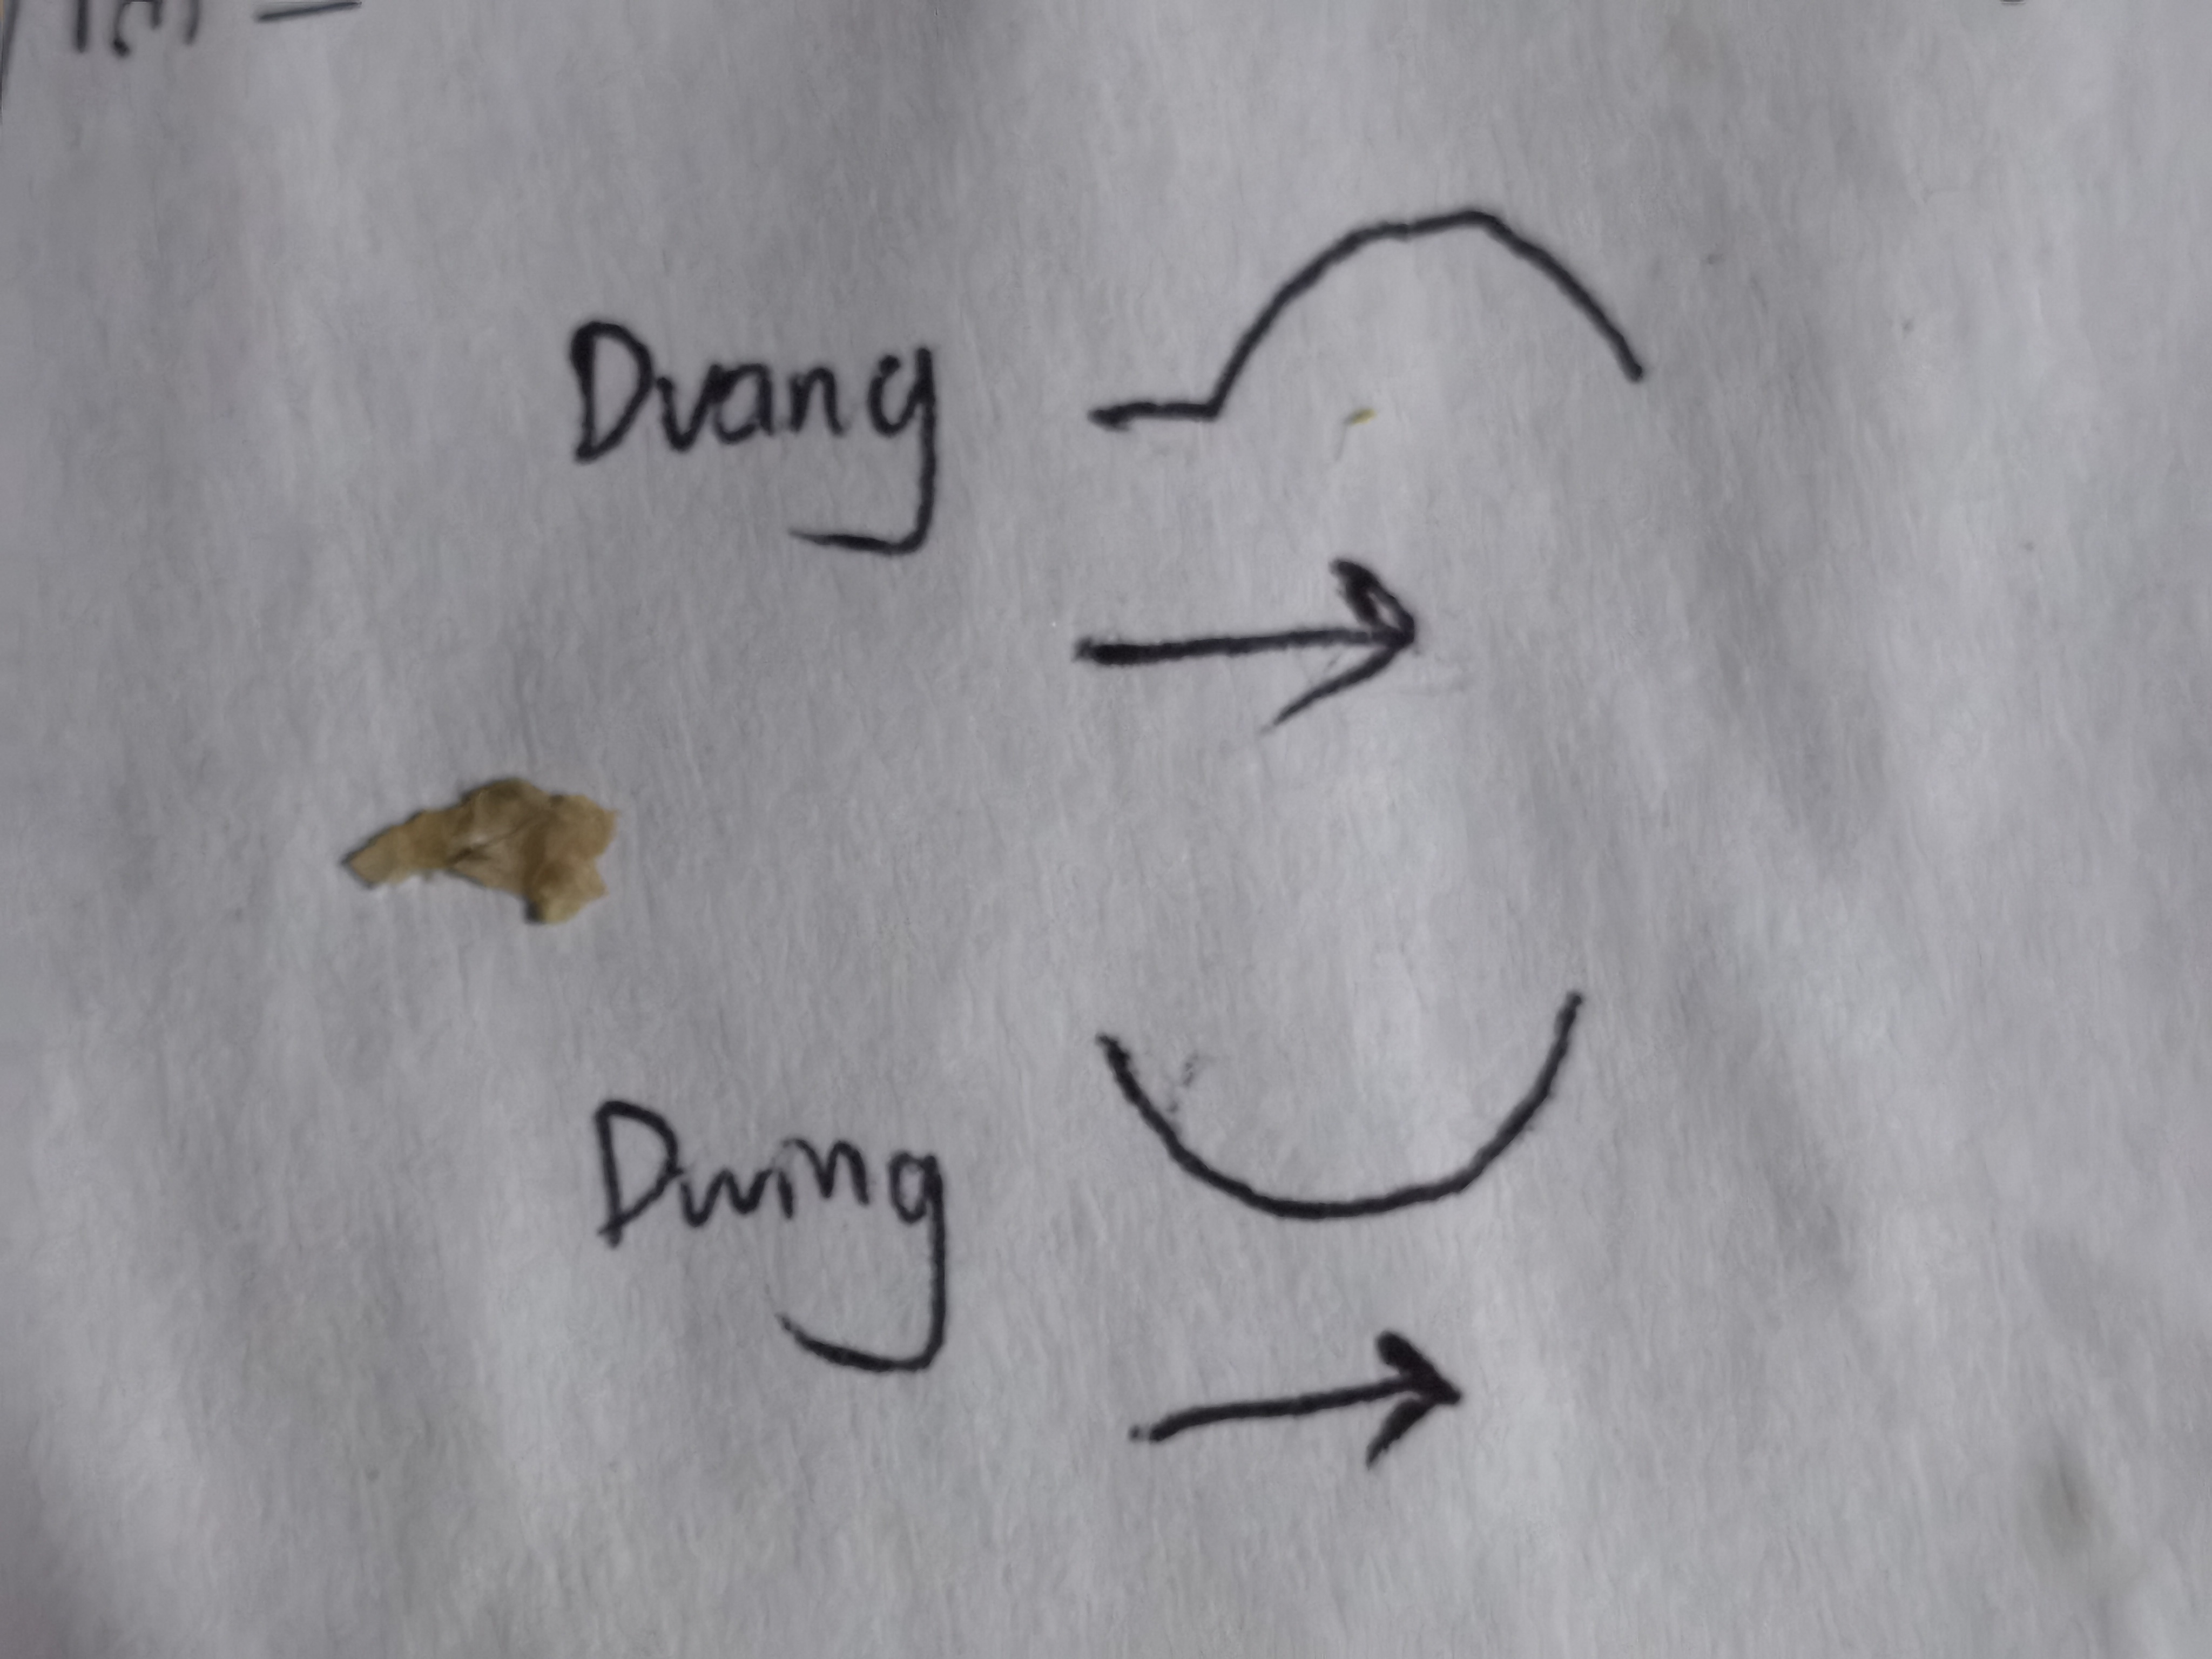 Dvang
Dwing